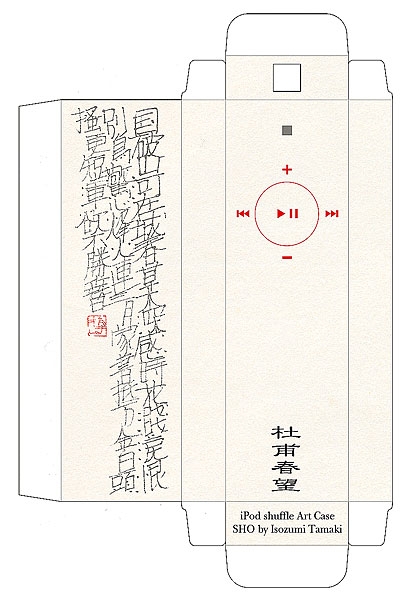 国破山河在城春草木深感時花濺涙恨
別鳥驚心烽火連三月家書抵万金白頭
搔更短渾欲不勝簪
杜甫春望
iPod shuffle Art Case
SHO by Isozumi Tamaki